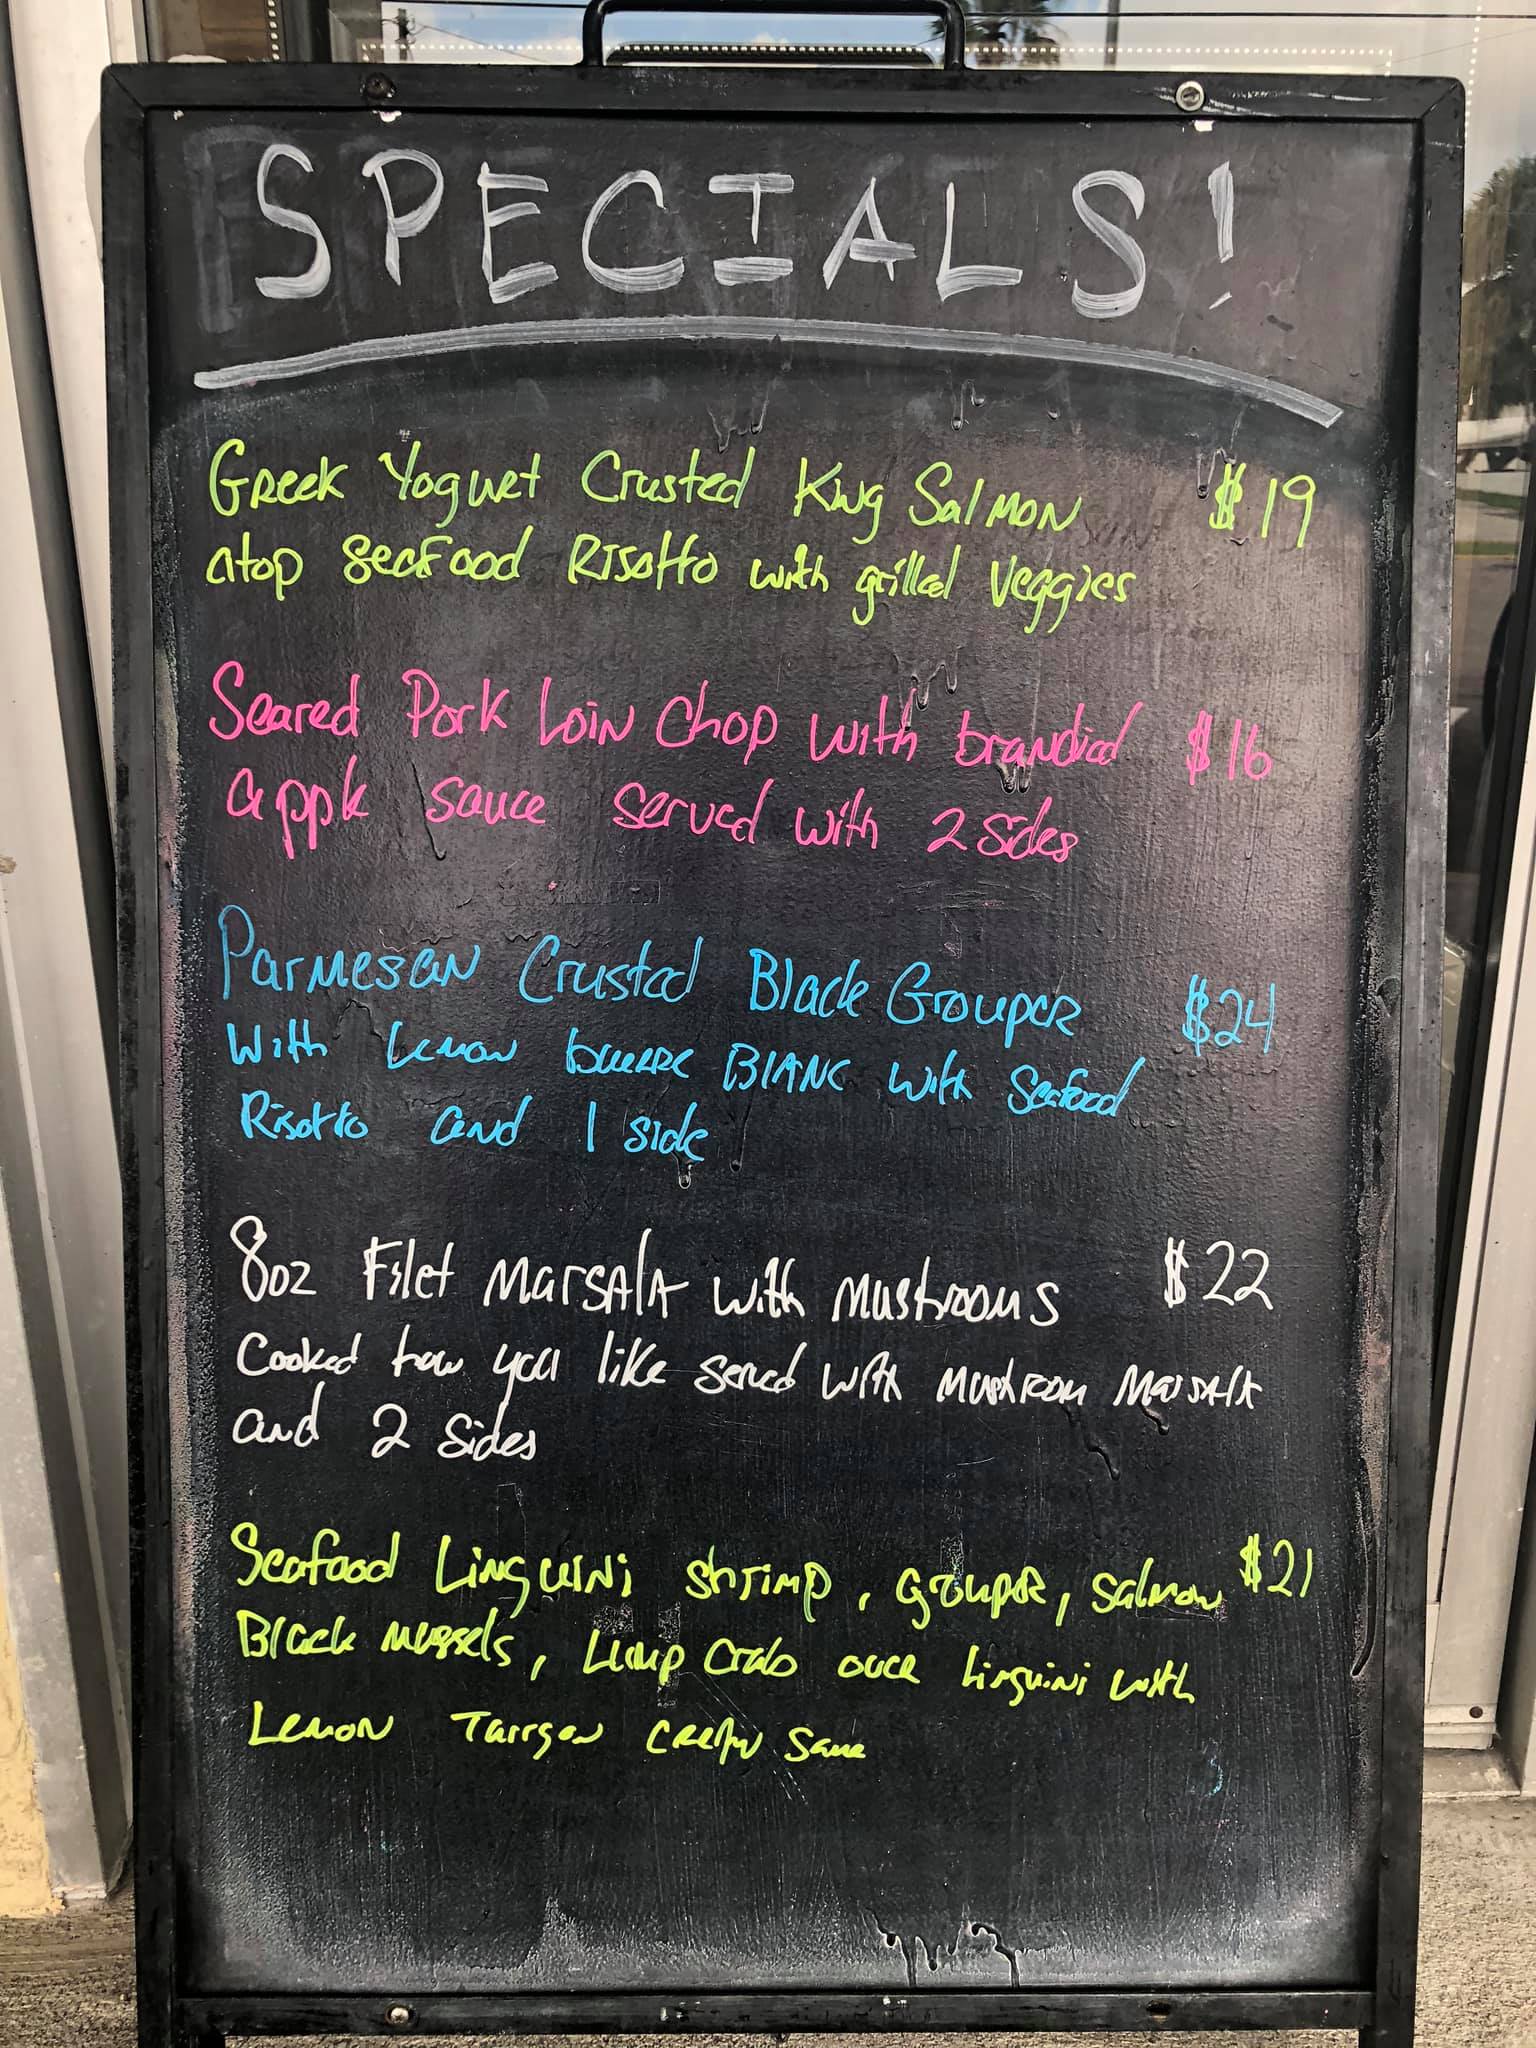 SPECIALS!
Greek Yogurt Crusted King Salmon $19
atop seafood Risotto with grilled veggies
Seared Pork Loin Chop with brandied $16
apple sauce served with 2 sides
Parmesan Crusted Black Grouper $24
With Lemon beurre BLANC with seafood
Risotto and 1 side
8oz Filet Marsala with mushrooms $22
Cooked how you like served with mushroom Marsala
and 2 sides
Seafood Linguini shrimp, grouper, salmon $21
Black mussels, Lump Crab over linguini with
Lemon Tarrgon sauce